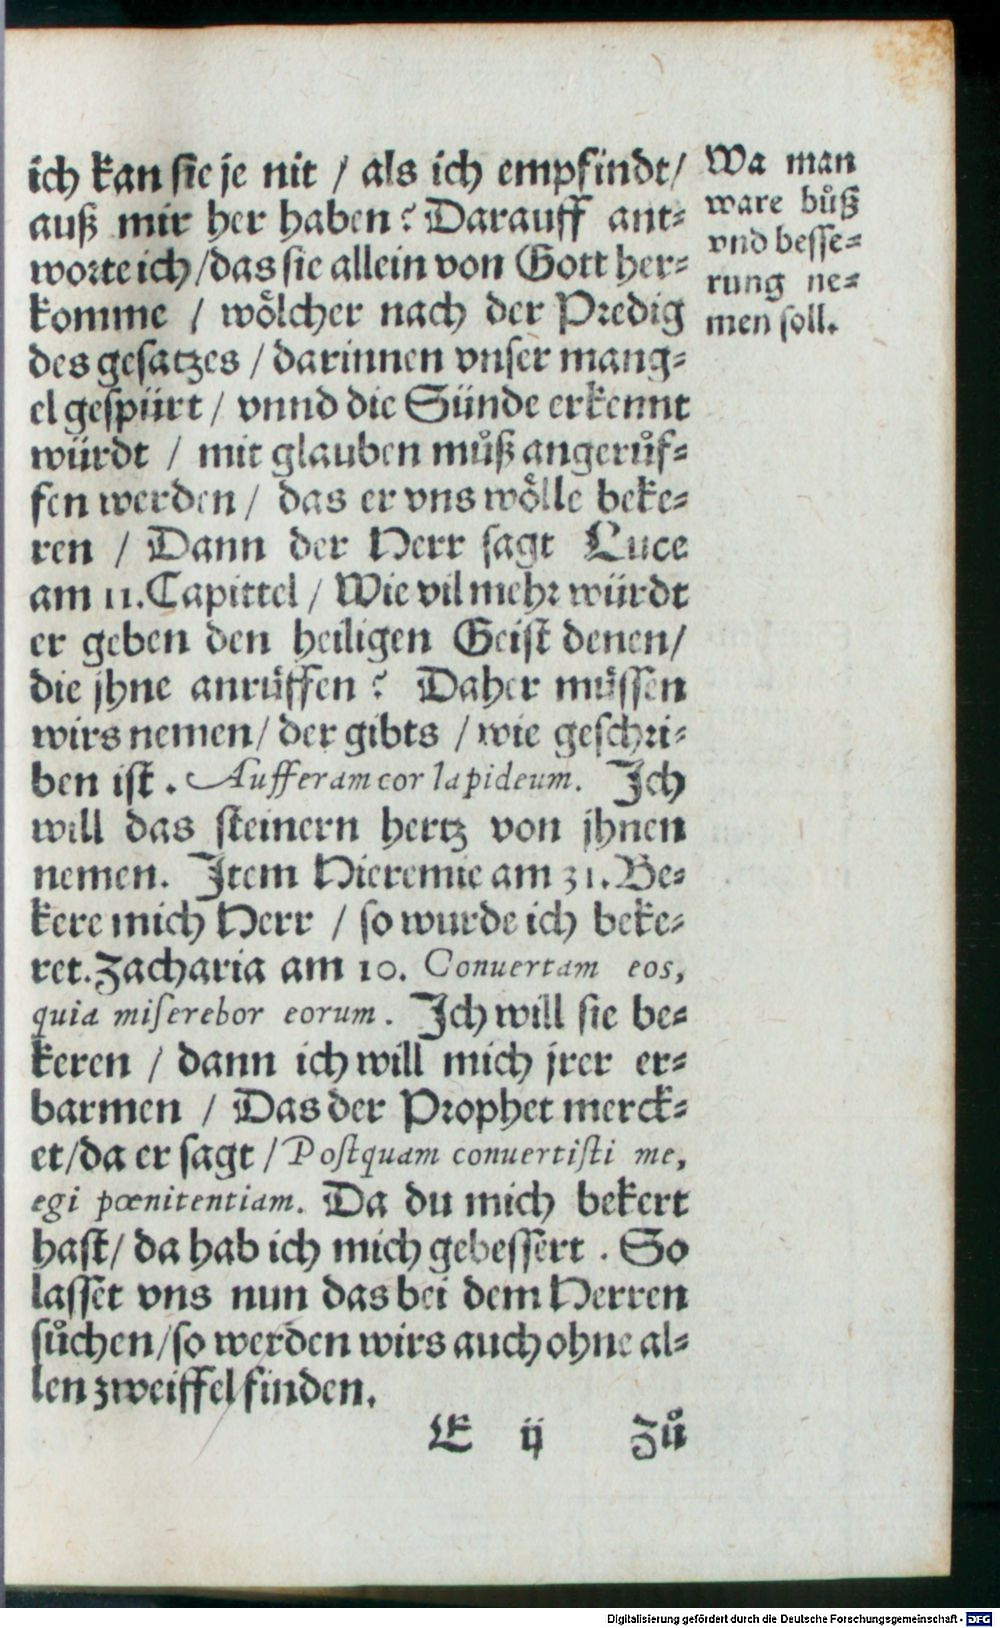 ich kan sie je nit / als ich empfindt/
auß mir her haben? Darauff ant-
worte ich /das sie allein von Gott her-
komme / woͤlcher nach der Predig
des gesatzes / darinnen vnser mang-
el gespürt / vnnd die Sünde erkennt
würdt / mit glauben muͦß angeruͤf-
fen werden / das er vns woͤlle beke-
ren / Dann der Herr sagt Luce
am 11. Capittel / Wie vil mehr würdt
er geben den heiligen Geist denen/
die jhne anruͤffen? Daher muͤssen
wirs nemen/ der gibts / wie geschri-
ben ist. Aufferam cor lapideum. Ich
will das steinern hertz von jhnen
nemen. Item Hieremie am 31. Be-
kere mich Herr / so wurde ich beke-
ret. Zacharia am 10. Conuertam eos,
quia miserebor eorum. Ich will sie be-
keren / dann ich will mich jrer er-
barmen / Das der Prophet merck-
et/da er sagt / Postquam conuertisti me,
egi pœnitentiam. Da du mich bekert
hast/ da hab ich mich gebessert. So
lasset vns nun das bei dem Herren
suͦchen/so werden wirs auch ohne al-
len zweiffel finden.
E ij Zuͦ
Wa man
ware buͦß
vnd besse-
rung ne-
men soll.
Digitalisierung gefördert durch die Deutsche Forschungsgemeinschaft - DFG